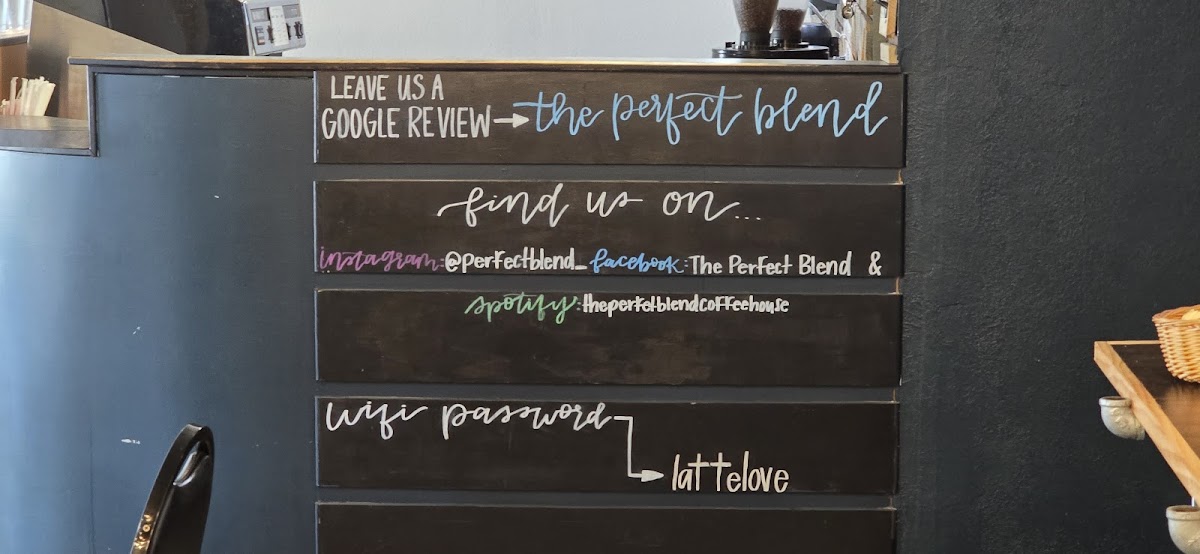 LEAVE US A
GOOGLE REVIEW → the perfect blend
find us on...
instagram: @perfectblend_ facebook: The Perfect Blend &
spotify: theperfetblendcoffeehouse
wifi password
lattelove